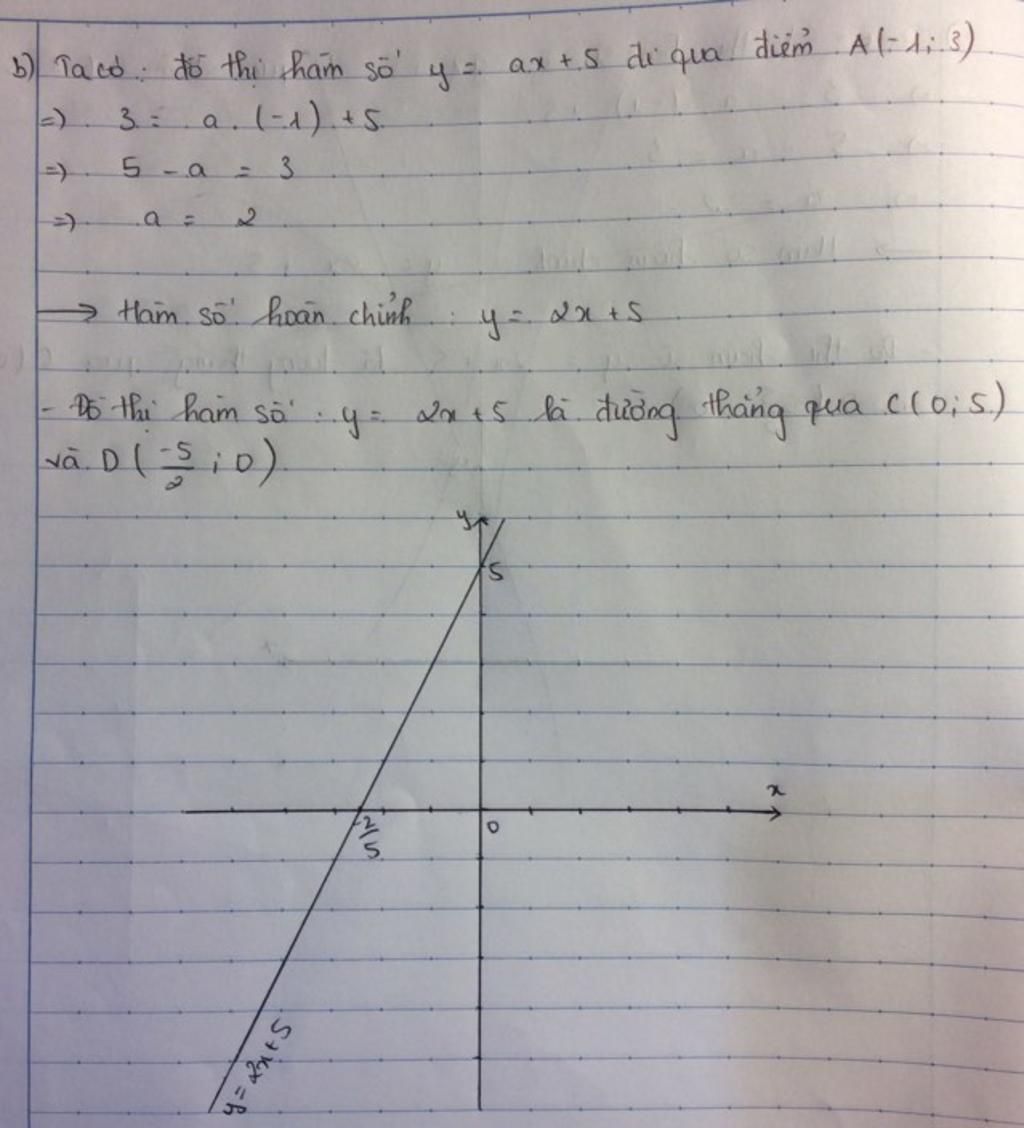 b) Ta có : đồ thị hàm số y = ax + 5 đi qua điểm A(-1; 3)
=> 3 = a . (-1) + 5
=> 5 - a = 3
=> a = 2
→ Hàm số hoàn chỉnh : y = 2x + 5
- Đồ thị hàm số : y = 2x + 5 là đường thẳng qua C(0; 5)
và D(-5/2 ; 0)
y
5
x
-2/5
0
y = 2x + 5